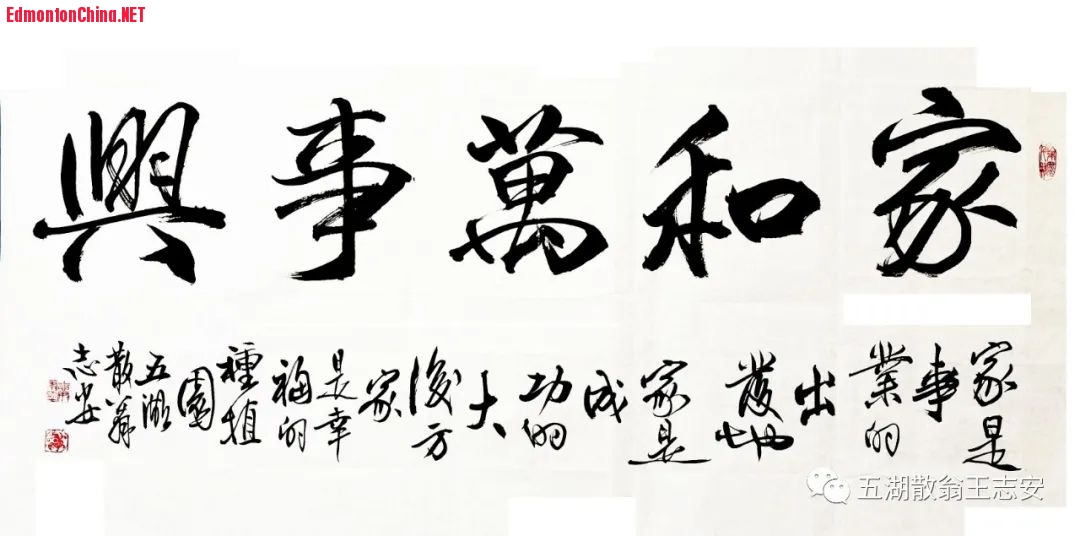 EdmontonChina.NET
家和萬事興
家是
事
業的
出
發地
家是
成
功的
大
後方
家
是幸
福的
種植
園
五湖
散翁
志安
五湖散翁王志安